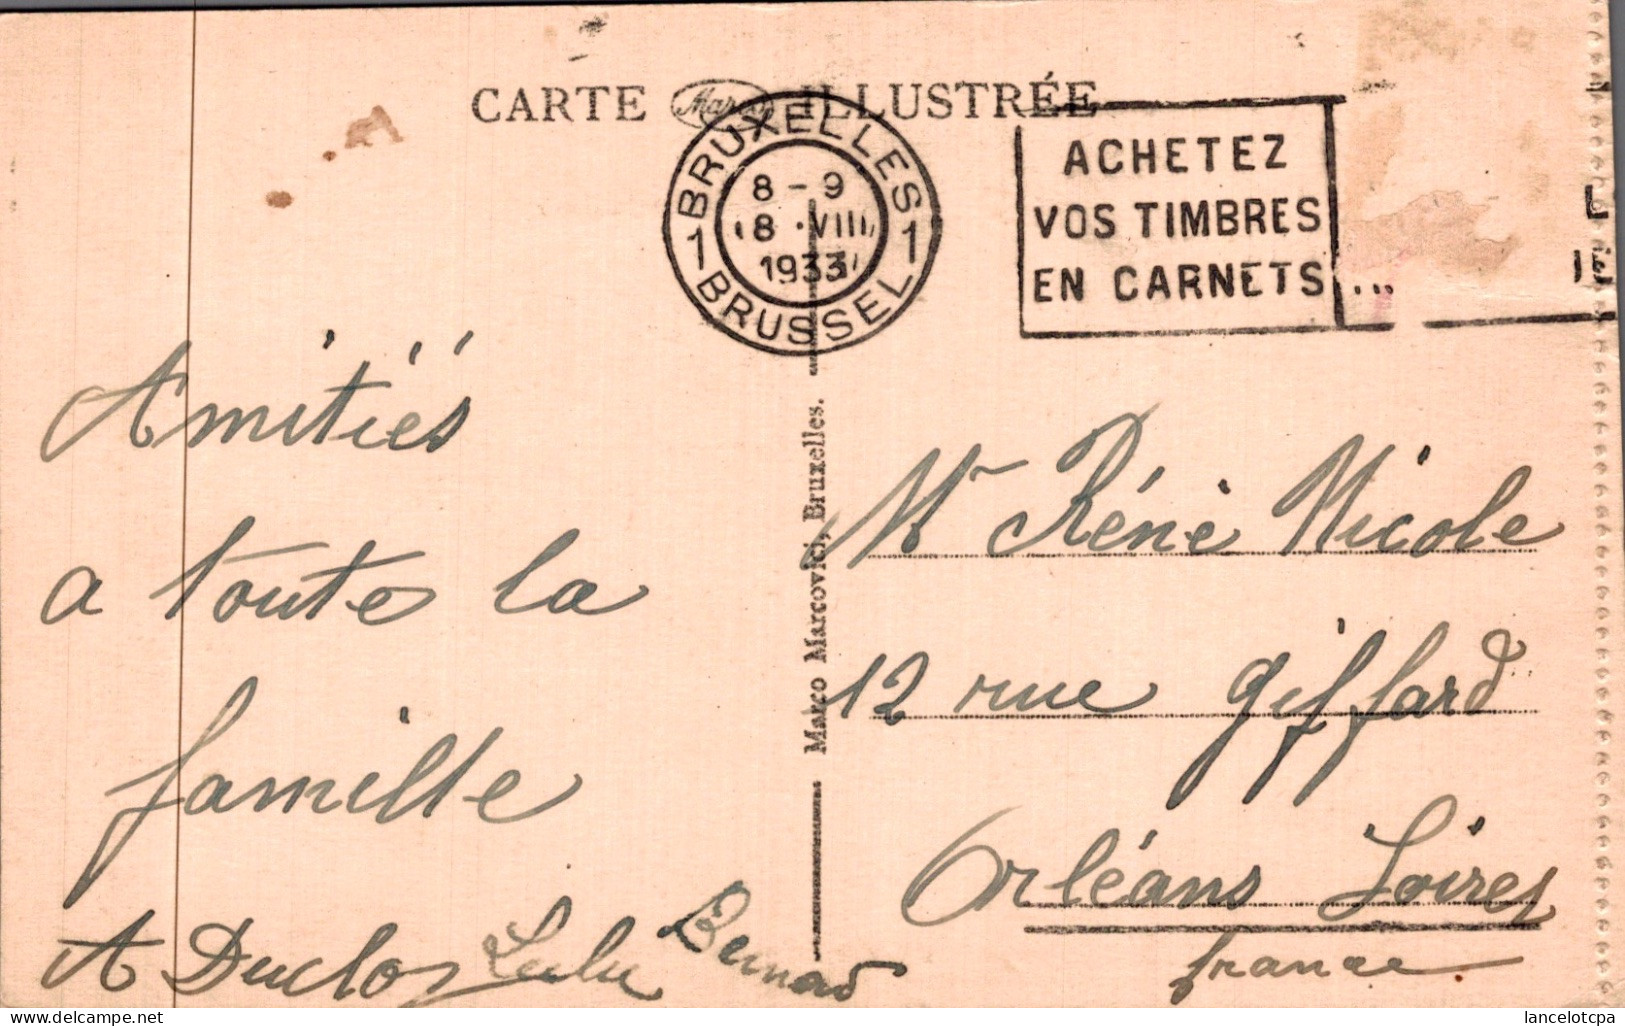 CARTE Marco ILLUSTRÉE
BRUXELLES
1 1
8 - 9
8 · VIII
1933
BRUSSEL
ACHETEZ
VOS TIMBRES
EN CARNETS...
Amitiés
a toute la
famille
A Duclos Lulu Bernard
Marco Marcovici, Bruxelles.
Mr Réné Nicole
12 rue Giffard
Orléans Loiret
france
Delcampe.net
lancelotcpa